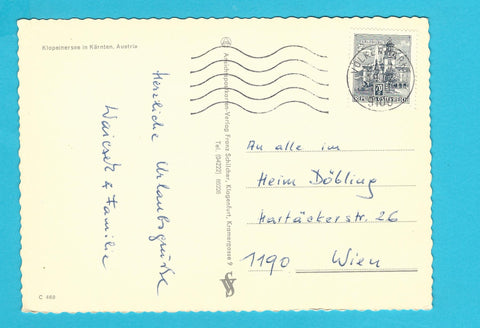 Klopeinersee in Kärnten, Austria
Herzliche Urlaubsgrüße
& Familie
C 460
Ansichtspostkarten-Verlag Franz Schilcher, Klagenfurt, Kramergasse 9
Tel. (04222) 80226
REPUBLIK ÖSTERREICH
An alle im
Heim Döbling
Hartäckerstr. 26
1190 Wien